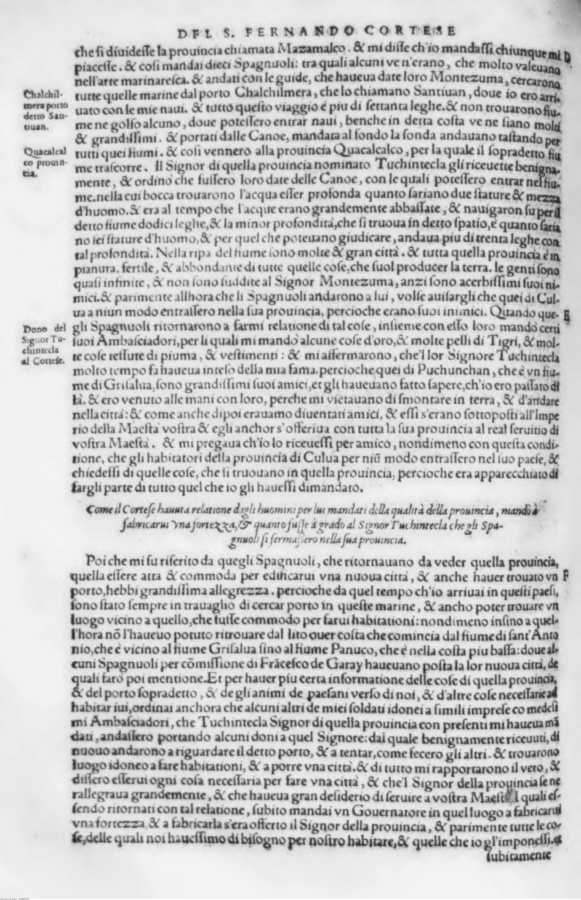 DEL S. FERNANDO CORTESE
che si diuidesse la prouincia chiamata Mazamalco. & mi disse ch'io mandassi chiunque mi D
piacesse. & cosi mandai dieci Spagnuoli: tra quali alcuni ve n'erano, che molto valeuano
nell'arte marinaresca. & andati con le guide, che haueua date loro Montezuma, cercarono
Chalchil-
mera porto
detto San-
tiuan.
tutte quelle marine dal porto Chalchilmera, che lo chiamano Santiuan, doue io ero arri-
uato con le mie naui. & tutto questo viaggio è piu di settanta leghe. & non trouarono fiu-
me ne golfo alcuno, doue potessero entrar naui, benche in detta costa ve ne siano molti
& grandissimi. & portati dalle Canoe, mandata al fondo la sonda andauano tastando per
Quacalcal
co prouin-
cia.
tutti quei fiumi. & cosi vennero alla prouincia Quacalcalco, per la quale il sopradetto fiu
me trascorre. Il Signor di quella prouincia nominato Tuchintecla gli riceuette benigna-
mente, & ordino che fussero loro date delle Canoe, con le quali potessero entrar nel fiu-
me. nella cui bocca trouarono l'acqua esser profonda quanto sariano due stature & mezza
d'huomo. & era al tempo che l'acque erano grandemente abbassate, & nauigaron su per il
detto fiume dodici leghe, & la minor profondità, che si truoua in detto spatio, è quanto saria
no sei stature d'huomo, & per quel che poteuano giudicare, andaua piu di trenta leghe con
tal profondità. Nella ripa del fiume sono molte & gran città. & tutta quella prouincia è in
pianura. fertile, & abbondante di tutte quelle cose, che suol producer la terra. le genti sono
quasi infinite, & non sono suddite al Signor Montezuma, anzi sono acerbissimi suoi ni-
mici. & parimente allhora che li Spagnuoli andarono a lui, volse auisargli che quei di Cul-
ua a niun modo entrassero nella sua prouincia, percioche erano suoi inimici. Quando que- E
Dono del
Signor Tu-
chintecla
al Cortese.
gli Spagnuoli ritornarono a farmi relatione di tal cose, insieme con esso loro mandò certi
suoi Ambasciadori, per li quali mi mandò alcune cose d'oro, & molte pelli di Tigri, & mol-
te cose tessute di piuma, & vestimenti: & mi affermarono, che'l lor Signore Tuchintecla
molto tempo fa haueua inteso della mia fama. percioche quei di Puchunchan, che è vn fiu-
me di Grisalua, sono grandissimi suoi amici, et gli haueuano fatto sapere, ch'io ero passato di
là. & ero venuto alle mani con loro, perche mi vietauano di smontare in terra, & d'andare
nella città: & come anche dipoi erauamo diuentati amici, & essi s'erano sottoposti all'Impe
rio della Maestà vostra & egli anchor s'offeriua con tutta la sua prouincia al real seruitio di
vostra Maestà. & mi pregaua ch'io lo riceuessi per amico, nondimeno con questa condi-
tione, che gli habitatori della prouincia di Culua per niũ modo entrassero nel suo paese, &
chiedessi di quelle cose, che si truouano in quella prouincia, percioche era apparecchiato di
fargli parte di tutto quel che io gli hauessi dimandato.
Come il Cortese hauuta relatione dagli huomini per lui mandati della qualità della prouincia, mandò à
fabricarui vna fortezza, & quanto fusse à grado al Signor Tuchintecla che gli Spa-
gnuoli si fermassero nella sua prouincia.
Poi che mi fu riferito da quegli Spagnuoli, che ritornauano da veder quella prouincia,
quella essere atta & commoda per edificarui vna nuoua città, & anche hauer trouato vn F
porto, hebbi grandissima allegrezza. percioche da quel tempo ch'io arriuai in questi paesi,
sono stato sempre in trauaglio di cercar porto in queste marine, & ancho poter trouare vn
luogo vicino a quello, che fusse commodo per farui habitationi: nondimeno insino a quel-
l'hora nõ l'haueuo potuto ritrouare dal lito ouer costa che comincia dal fiume di sant'Anto
nio, che è vicino al fiume Grisalua sino al fiume Panuco, che è nella costa piu bassa: doue al-
cuni Spagnuoli per cõmissione di Frãcesco de Garay haueuano posta la lor nuoua città, de
quali farò poi mentione. Et per hauer piu certa informatione delle cose di quella prouincia,
& del porto sopradetto, & de gli animi de paesani verso di noi, & d'altre cose necessarie ad
habitar iui, ordinai anchora che alcuni altri de miei soldati idonei a simili imprese co medesi
mi Ambasciadori, che Tuchintecla Signor di quella prouincia con presenti mi haueua mã
dati, andassero portando alcuni doni a quel Signore: dal quale benignamente riceuuti, di
nuouo andarono a riguardare il detto porto, & a tentar, come fecero gli altri. & trouarono
luogo idoneo a fare habitationi, & a porre vna città. & di tutto mi rapportarono il vero, &
dissero esserui ogni cosa necessaria per fare vna città, & che'l Signor della prouincia se ne
rallegraua grandemente, & che haueua gran desiderio di seruire a vostra Maestà. I quali es-
sendo ritornati con tal relatione, subito mandai vn Gouernatore in quel luogo a fabricarui
vna fortezza & a fabricarla s'era offerto il Signor della prouincia, & parimente tutte le co-
se, delle quali noi hauessimo di bisogno per nostro habitare, & quelle che io gl'imponessi. &
subitamente